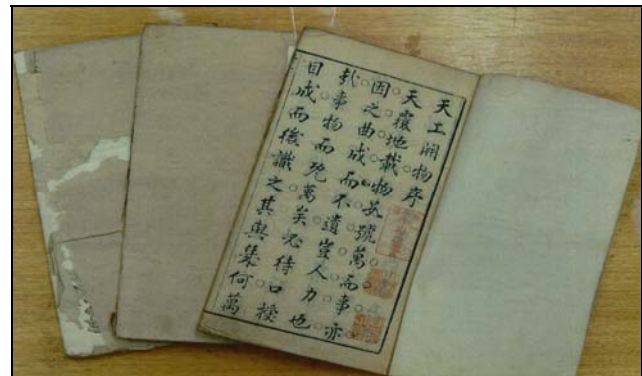 天工開物序
天覆地載物数號萬而事亦
因之曲成而不遺豈人力也
哉事物而既萬矣必待口授
目成而後識之其與幾何萬